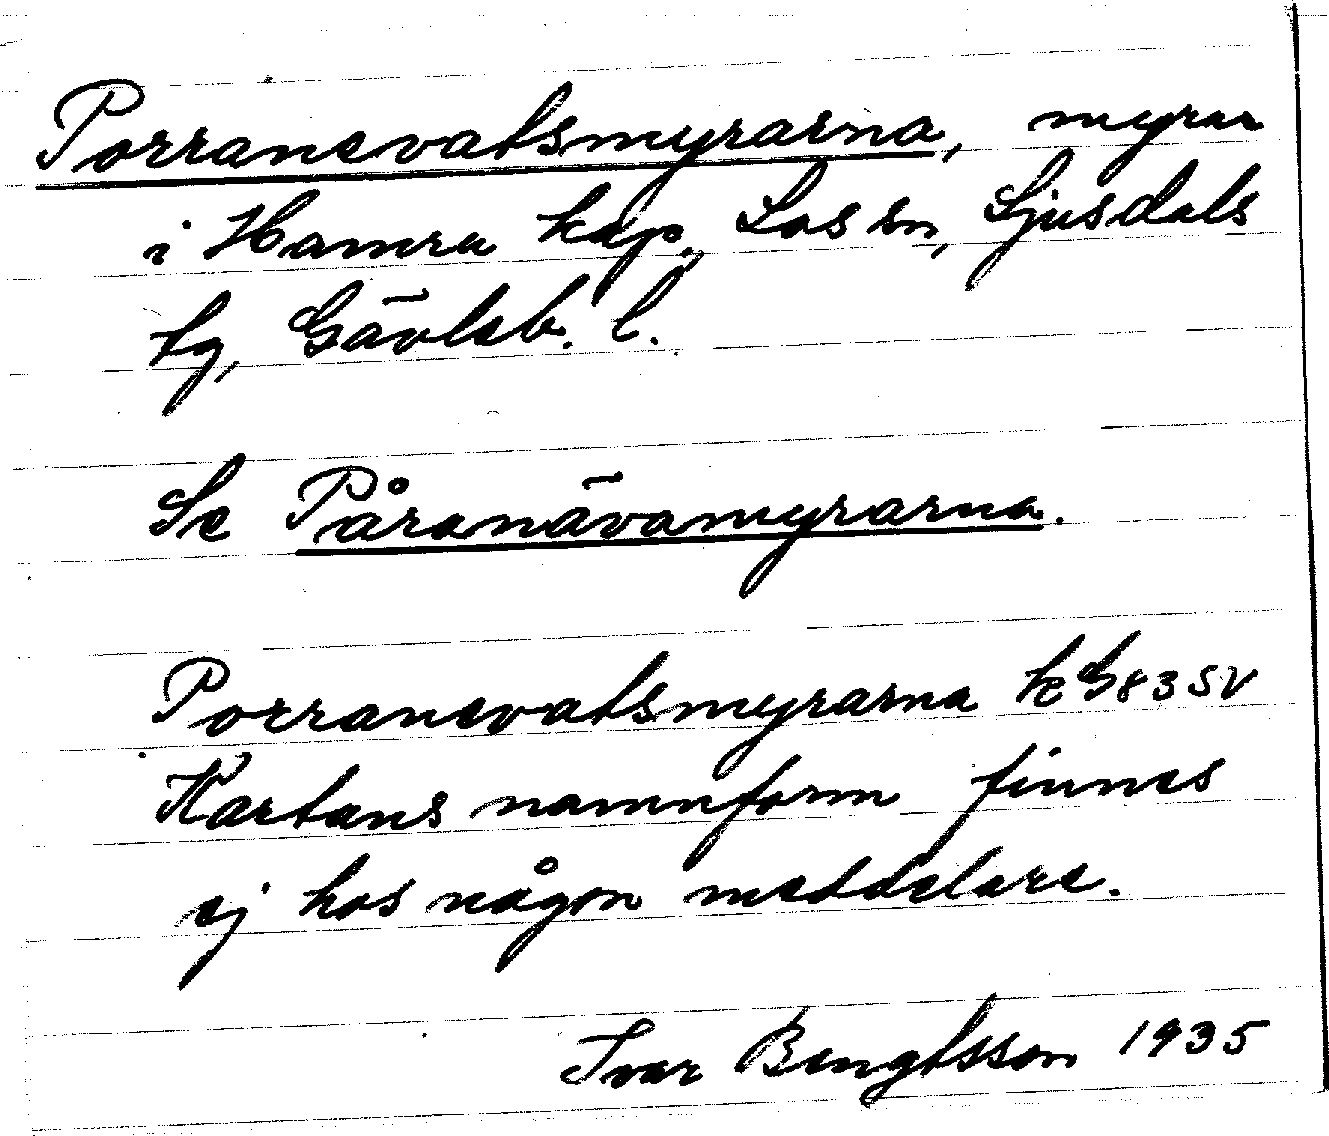 Porranevatsmyrarna, myrar
i Hamra kap., Los sn, Ljusdals
tg, Gävleb. l.
Se Påranävamyrarna.
Porranevatsmyrarna k G 83 SV
Kartans namnform finnes
ej hos någon meddelare.
Ivar Bengtsson 1935